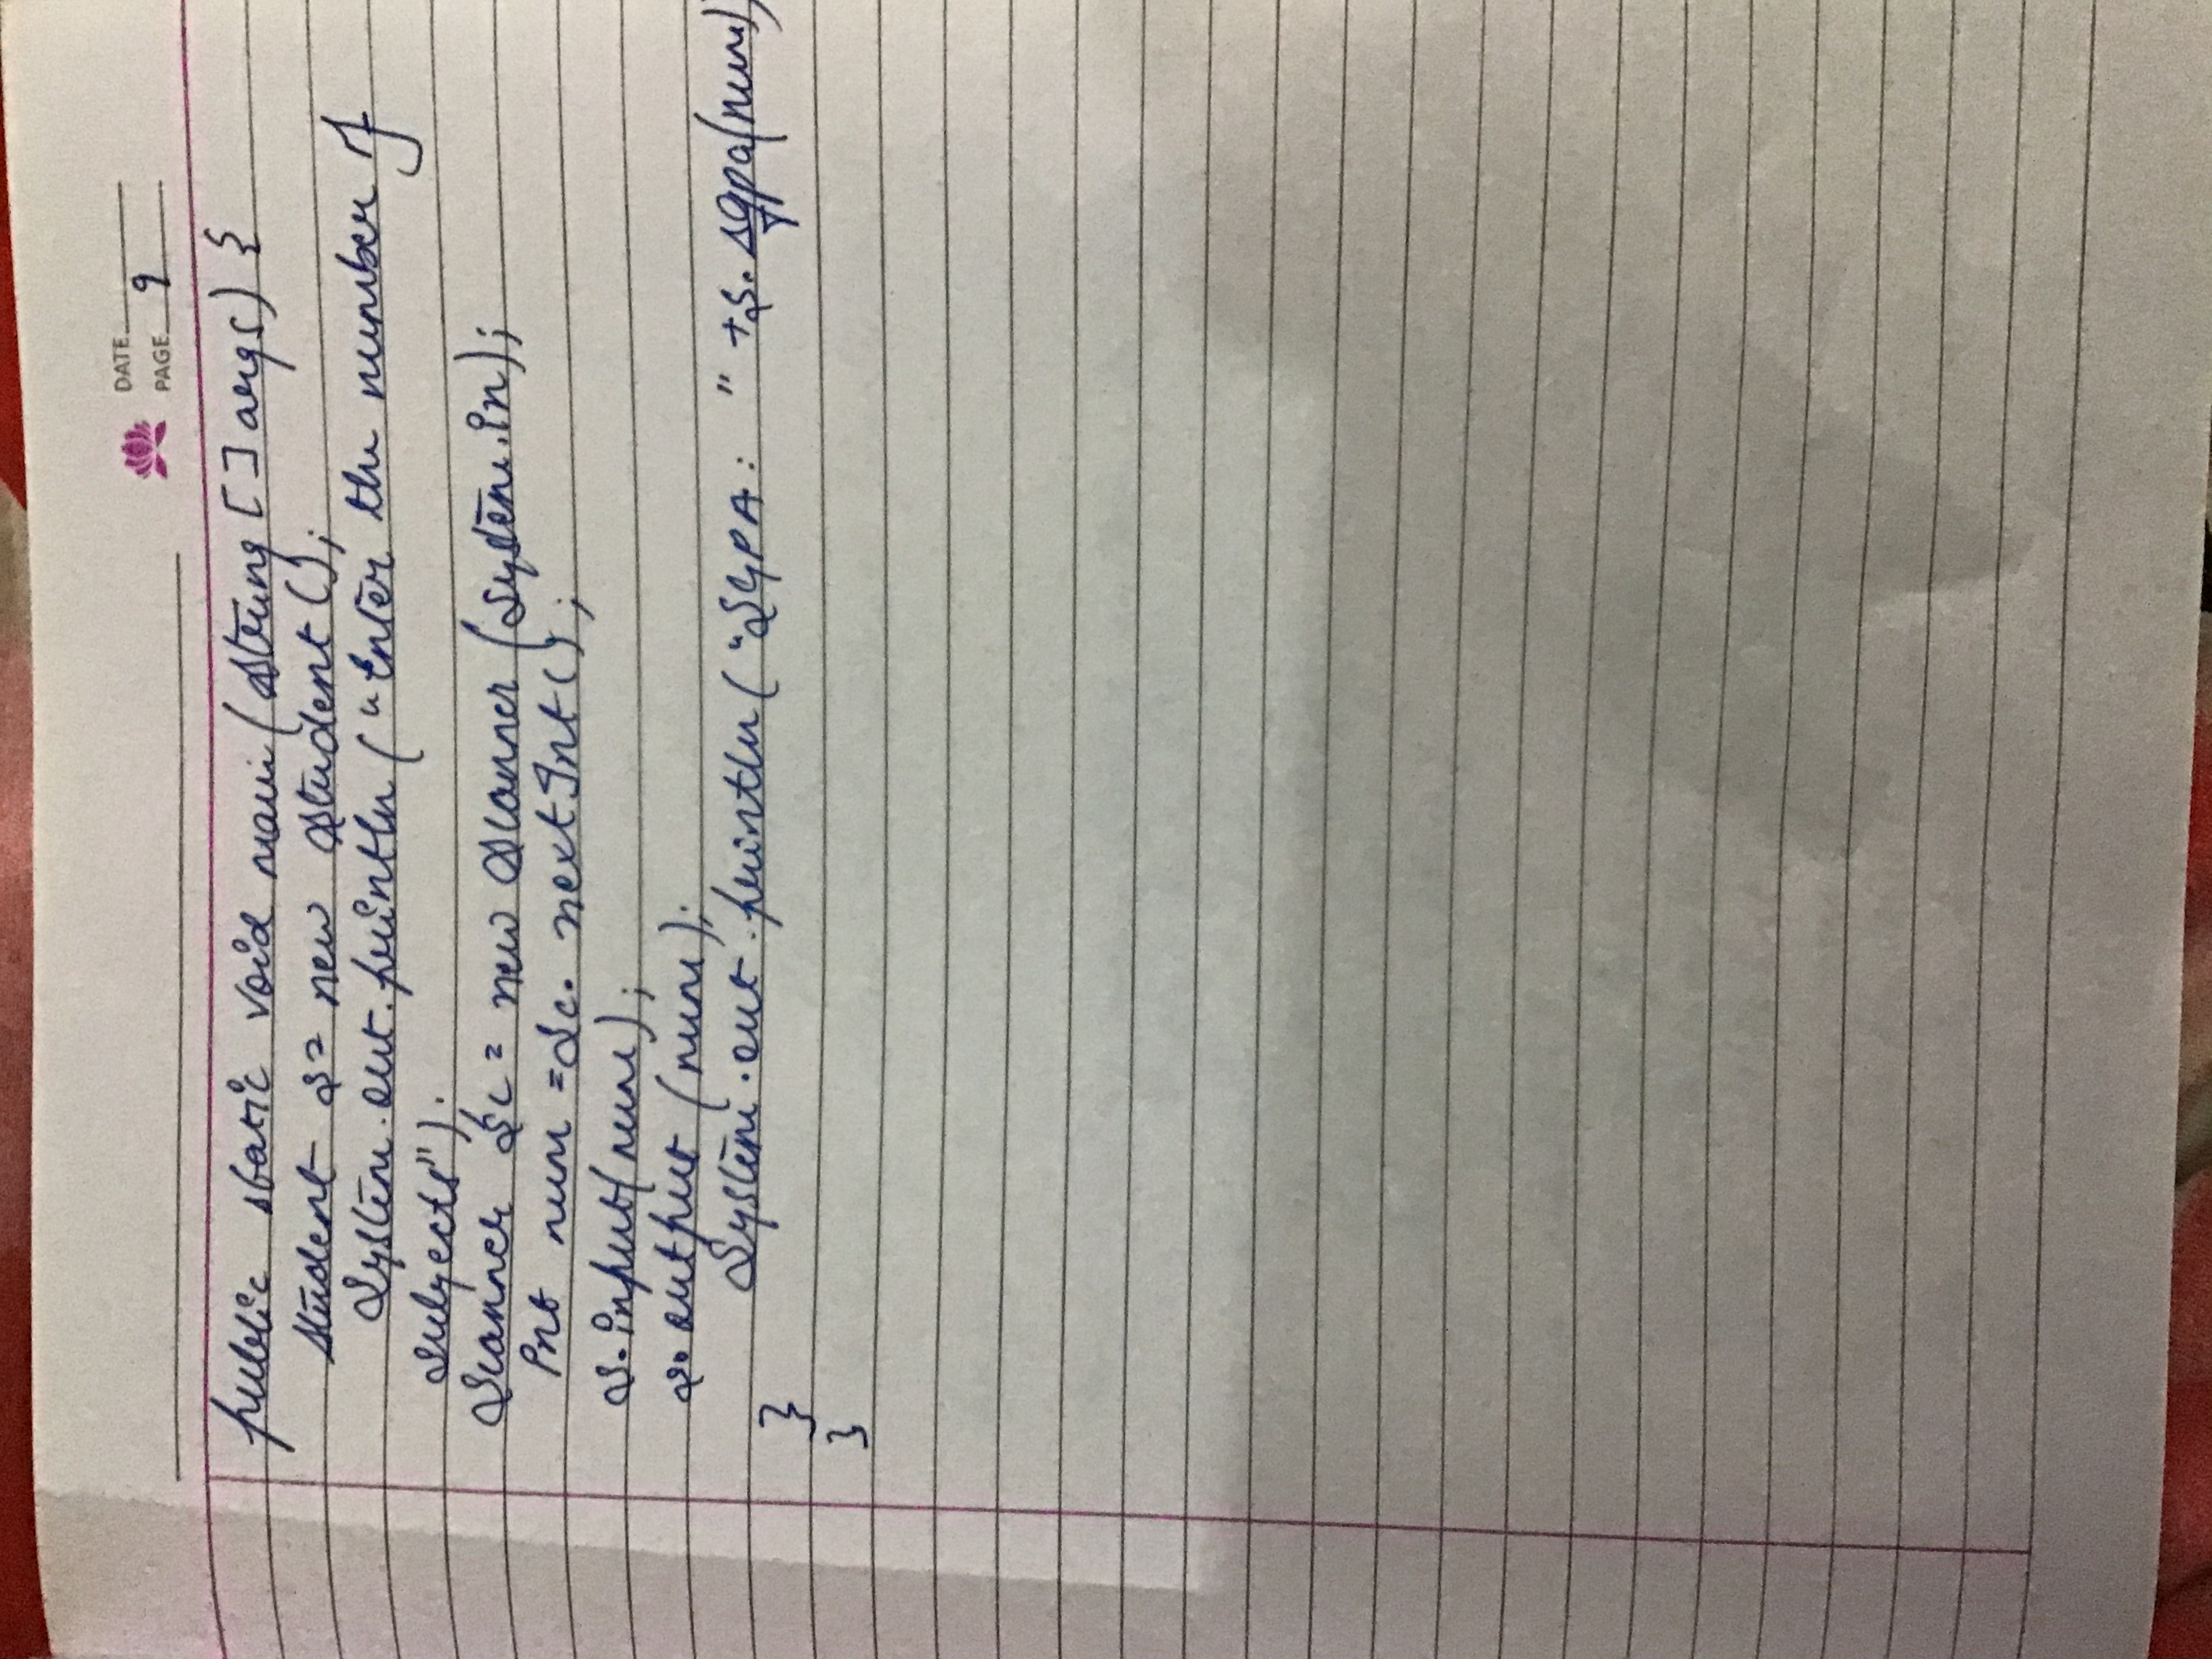 DATE
PAGE 9
public static void main(String[] args) {
Student s= new Student();
System.out.println("Enter the number of
subjects");
Scanner Sc= new Scanner(System.in);
int num =Sc. nextInt();
s.input(num);
s.output(num);
System.out.println("SGPA: " +s.sgpa(num)
}
}